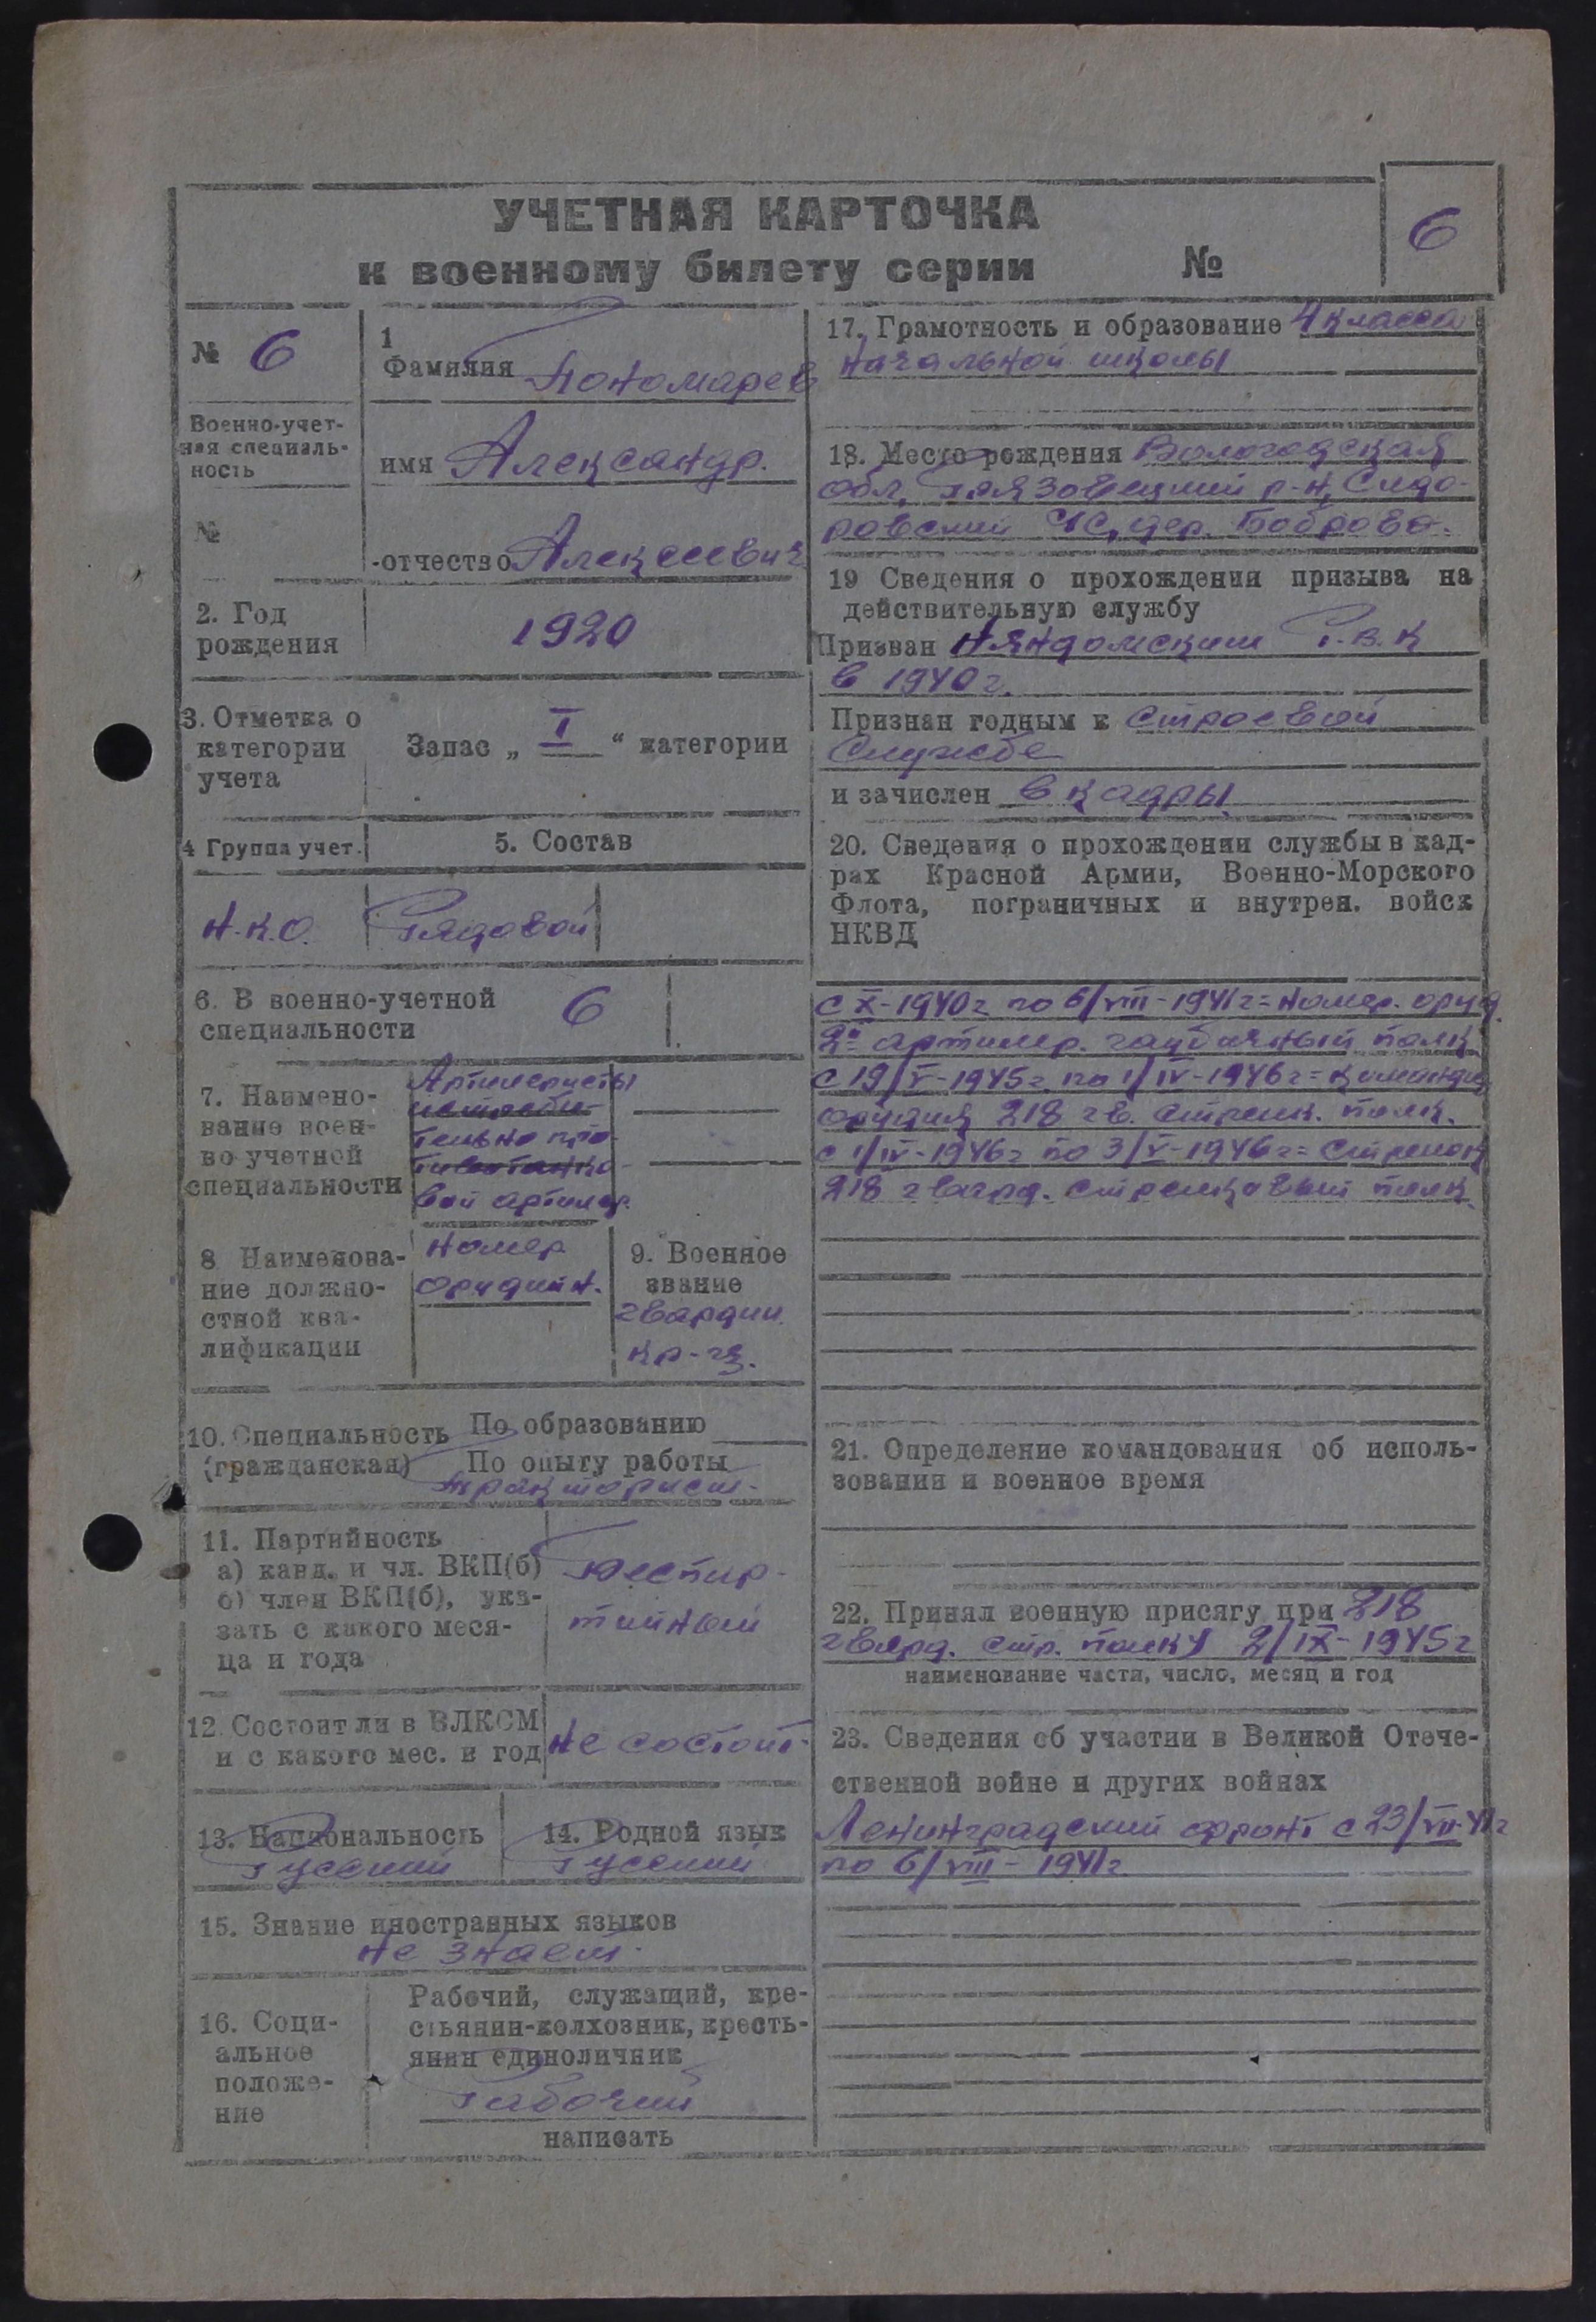 УЧЕТНАЯ КАРТОЧКА
к военному билету серии №
6
№ 6
Военно-учет-
ная специаль-
ность
№
1
Фамилия Пономарев
имя Александр.
отчество Алексеевич
2. Год
рождения
1920
3. Отметка о
категории
учета
Запас „ I “ категории
4 Группа учет.
5. Состав
Н.К.О.
Рядовой
6. В военно-учетной
специальности
6
7. Наимено-
вание воен-
но учетной
специальности
Артилеристы
истреби-
тельно про-
тивотанко-
вой артилер.
8 Наименова-
ние должно-
стной ква-
лификации
Номер
орудийн.
9. Военное
звание
гвардии.
кр-ц.
10. Специальность
(гражданская)
По образованию
По опыту работы
Тракторист.
11. Партийность
а) канд. и чл. ВКП(б)
б) член ВКП(б), ука-
зать с какого меся-
ца и года
Беспар-
тийный
12. Состоит ли в ВЛКСМ
и с какого мес. и год
Не состоит.
13. Национальность
Русский
14. Родной язык
Русский
15. Знание иностранных языков
Не знает.
16. Соци-
альное
положе-
ние
Рабочий, служащий, кре-
стьянин-колхозник, кресть-
янин единоличник
Рабочий
написать
17. Грамотность и образование 4 класса
начальной школы
18. Место рождения Вологодская
обл, Грязовецкий р-н, Сидо-
ровский с/с, дер. Боброво.
19 Сведения о прохождения призыва на
действительную службу
Призван Няндомским Р.В.К
в 1940 г.
Признан годным к строевой
службе
и зачислен в кадры
20. Сведения о прохождении службы в кад-
рах Красной Армии, Военно-Морского
Флота, пограничных и внутрен. войск
НКВД
с X-1940г по 6/VIII-1941г = номер. оруд.
2й артилер. гаубичный полк
с 19/V-1945г по 1/IV-1946г = командир
орудия 218 гв. стрелк. полк.
с 1/IV-1946г по 3/V-1946г = стрелок
218 гвард. стрелковый полк.
21. Определение командования об исполь-
зовании и военное время
22. Принял военную присягу при 218
гвард. стр. полку 2/IX-1945г
наименование части, число, месяц и год
23. Сведения об участии в Великой Отече-
ственной войне и других войнах
Ленинградский фронт с 23/VII-41г
по 6/VIII-1941г